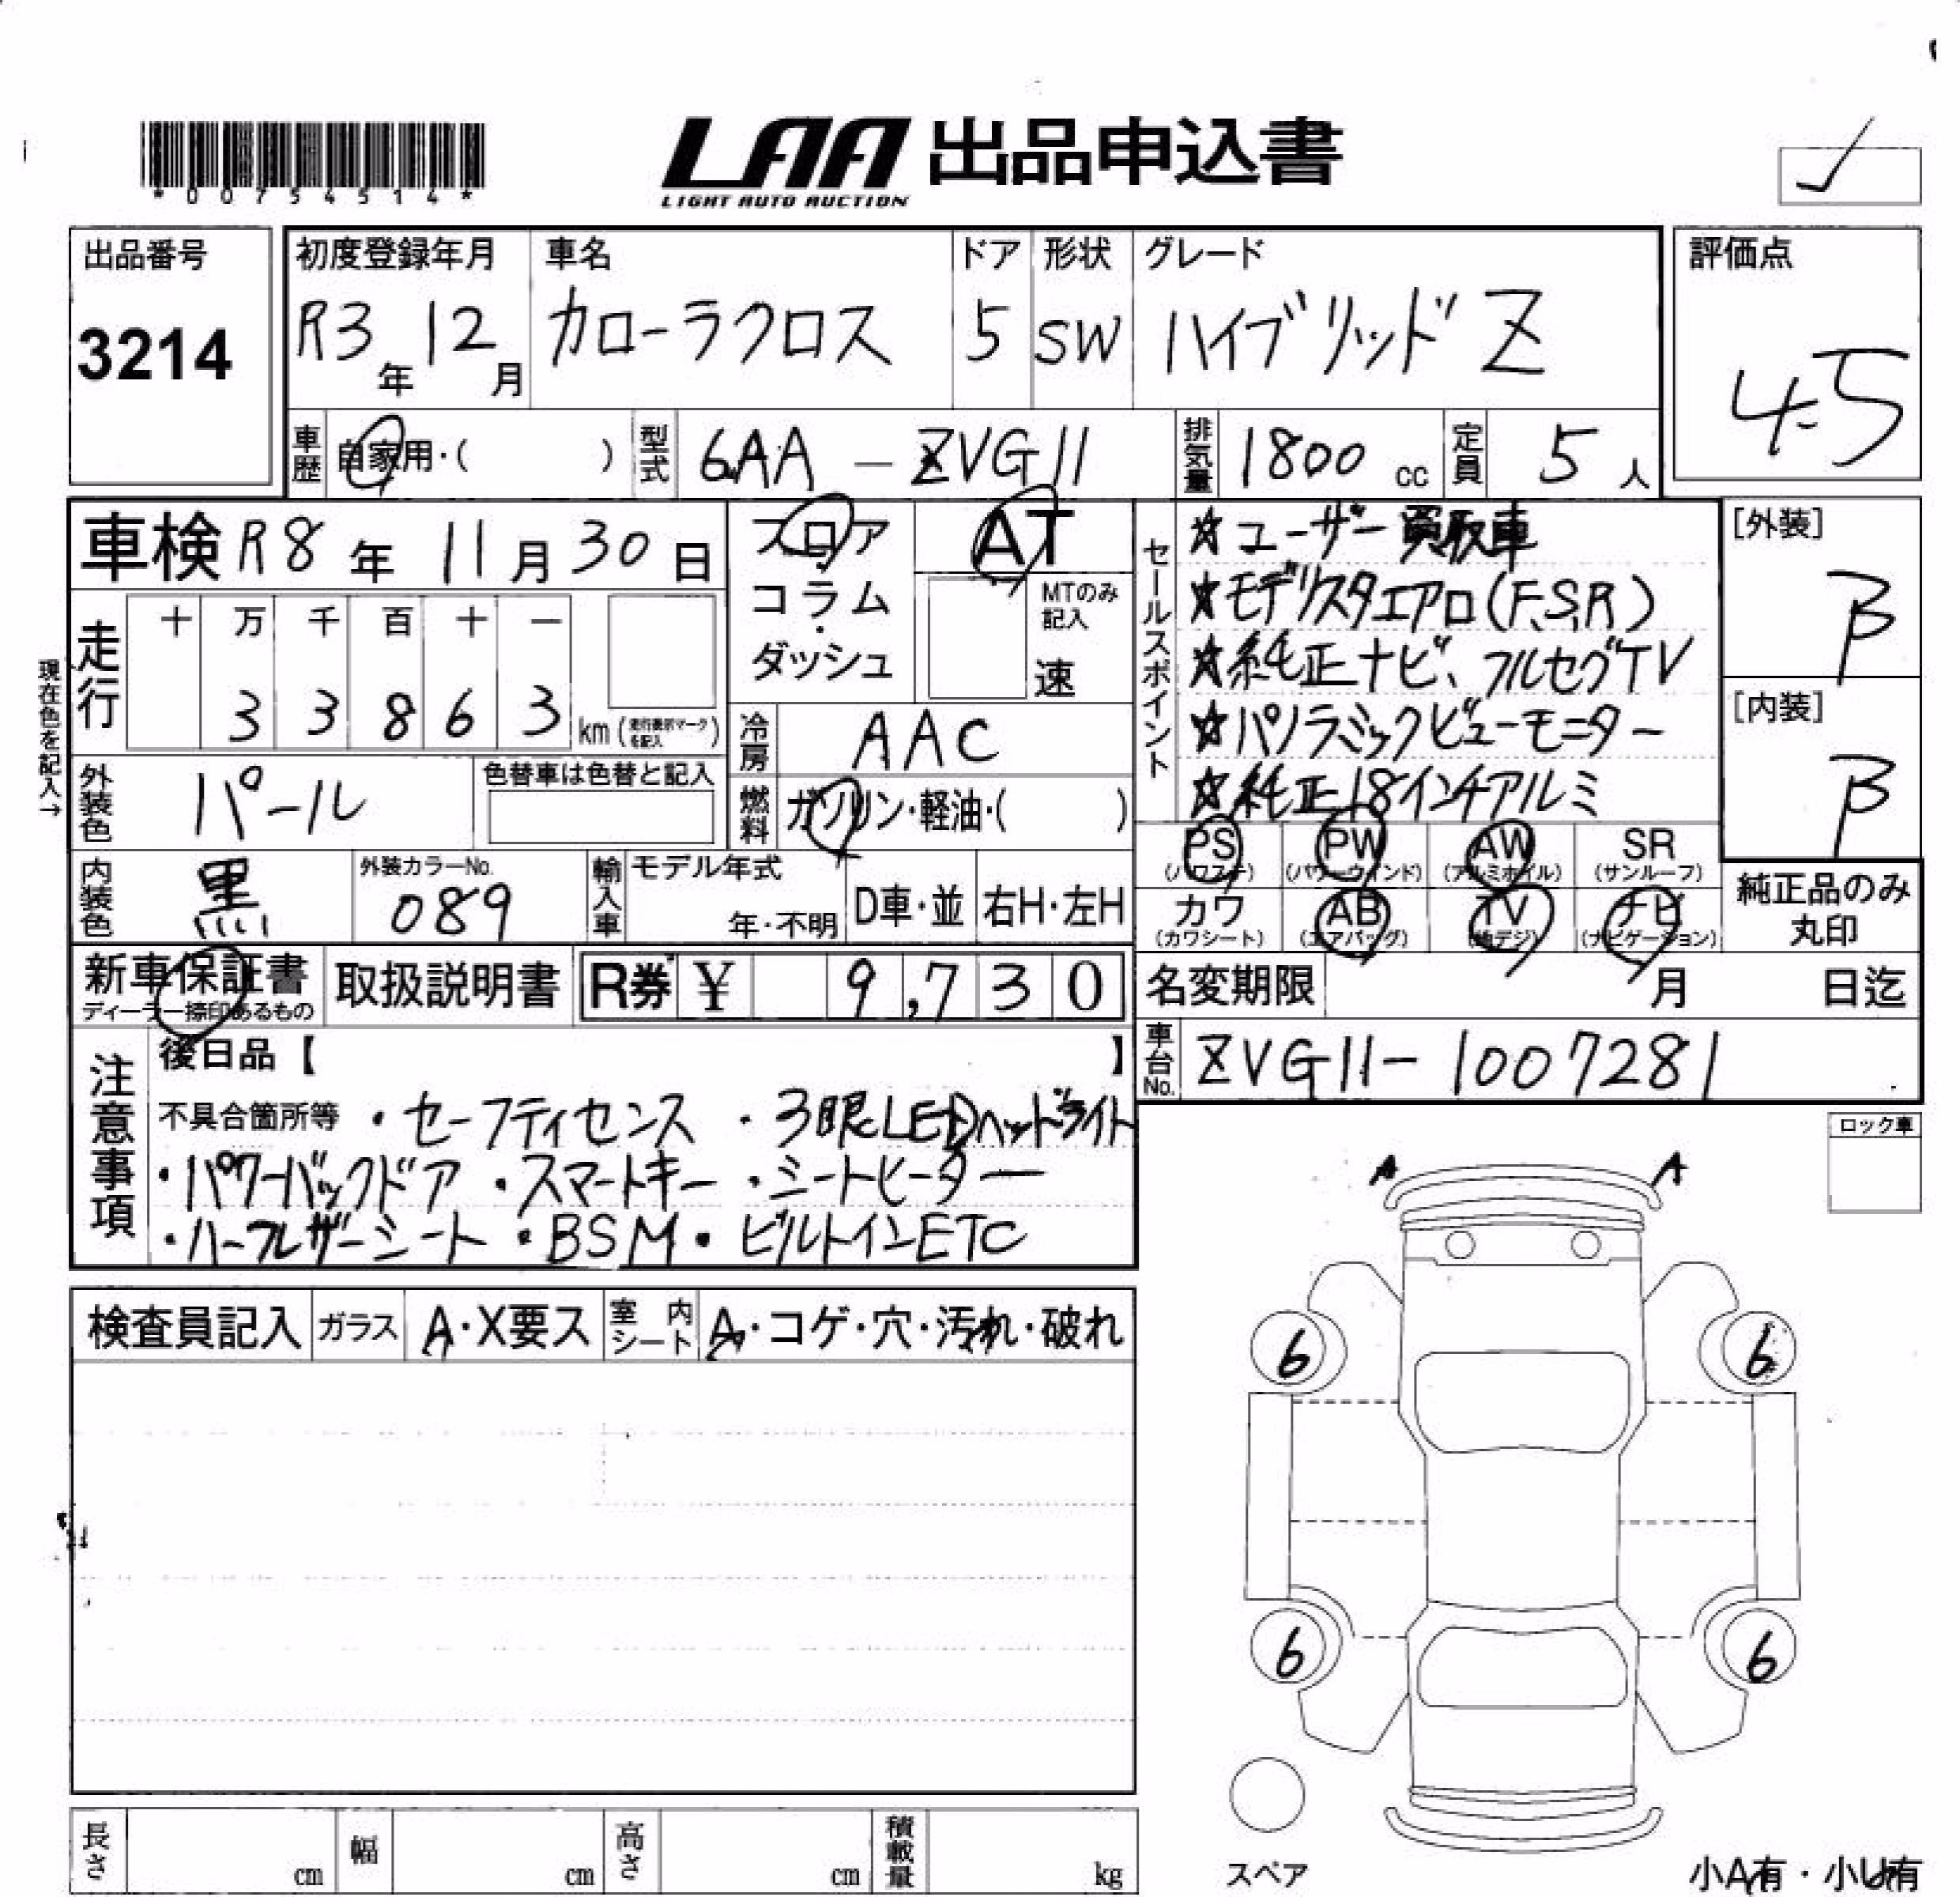 *00754514*
LAA 出品申込書
LIGHT AUTO AUCTION
出品番号
3214
初度登録年月 車名 ドア 形状 グレード
R3年 12月 カローラクロス 5 SW ハイブリッド Z
評価点
4.5
車歴 自家用・( ) 型式 6AA - ZVG11 排気量 1800 cc 定員 5 人
車検 R8年 11月 30日
フロア・コラム・ダッシュ
AT
MTのみ記入
速
セールスポイント
☆ユーザー買取車
☆モデリスタエアロ(F,S,R)
☆純正ナビ、フルセグTV
☆パノラミックビューモニター
☆純正18インチアルミ
[外装]
B
[内装]
B
現在色を記入→
走行 十 万 千 百 十 一
3 3 8 6 3 km (走行表示マークを記入)
冷房 AAC
外装色 パール 色替車は色替と記入
燃料 ガソリン・軽油・( )
PS PW AW SR
(パワステ) (パワーウインド) (アルミホイル) (サンルーフ)
カワ AB TV ナビ
(カワシート) (エアバッグ) (地デジ) (ナビゲーション)
純正品のみ丸印
内装色 黒 外装カラーNo. 089 輸入車 モデル年式 年・不明 D車・並 右H・左H
新車保証書 取扱説明書 R券 ¥ 9,730
ディーラー捺印あるもの
名変期限 月 日迄
車台No. ZVG11-1007281
注意事項
後日品【 】
不具合箇所等 ・セーフティセンス ・3眼LEDヘッドライト
・パワーバックドア ・スマートキー ・シートヒーター
・ハーフレザーシート ・BSM ・ビルトインETC
ロック車
検査員記入 ガラス A・X要ス 室内シート A・コゲ・穴・汚れ・破れ
A A
6 6
6 6
スペア
小A有・小U有
長さ cm 幅 cm 高さ cm 積載量 kg